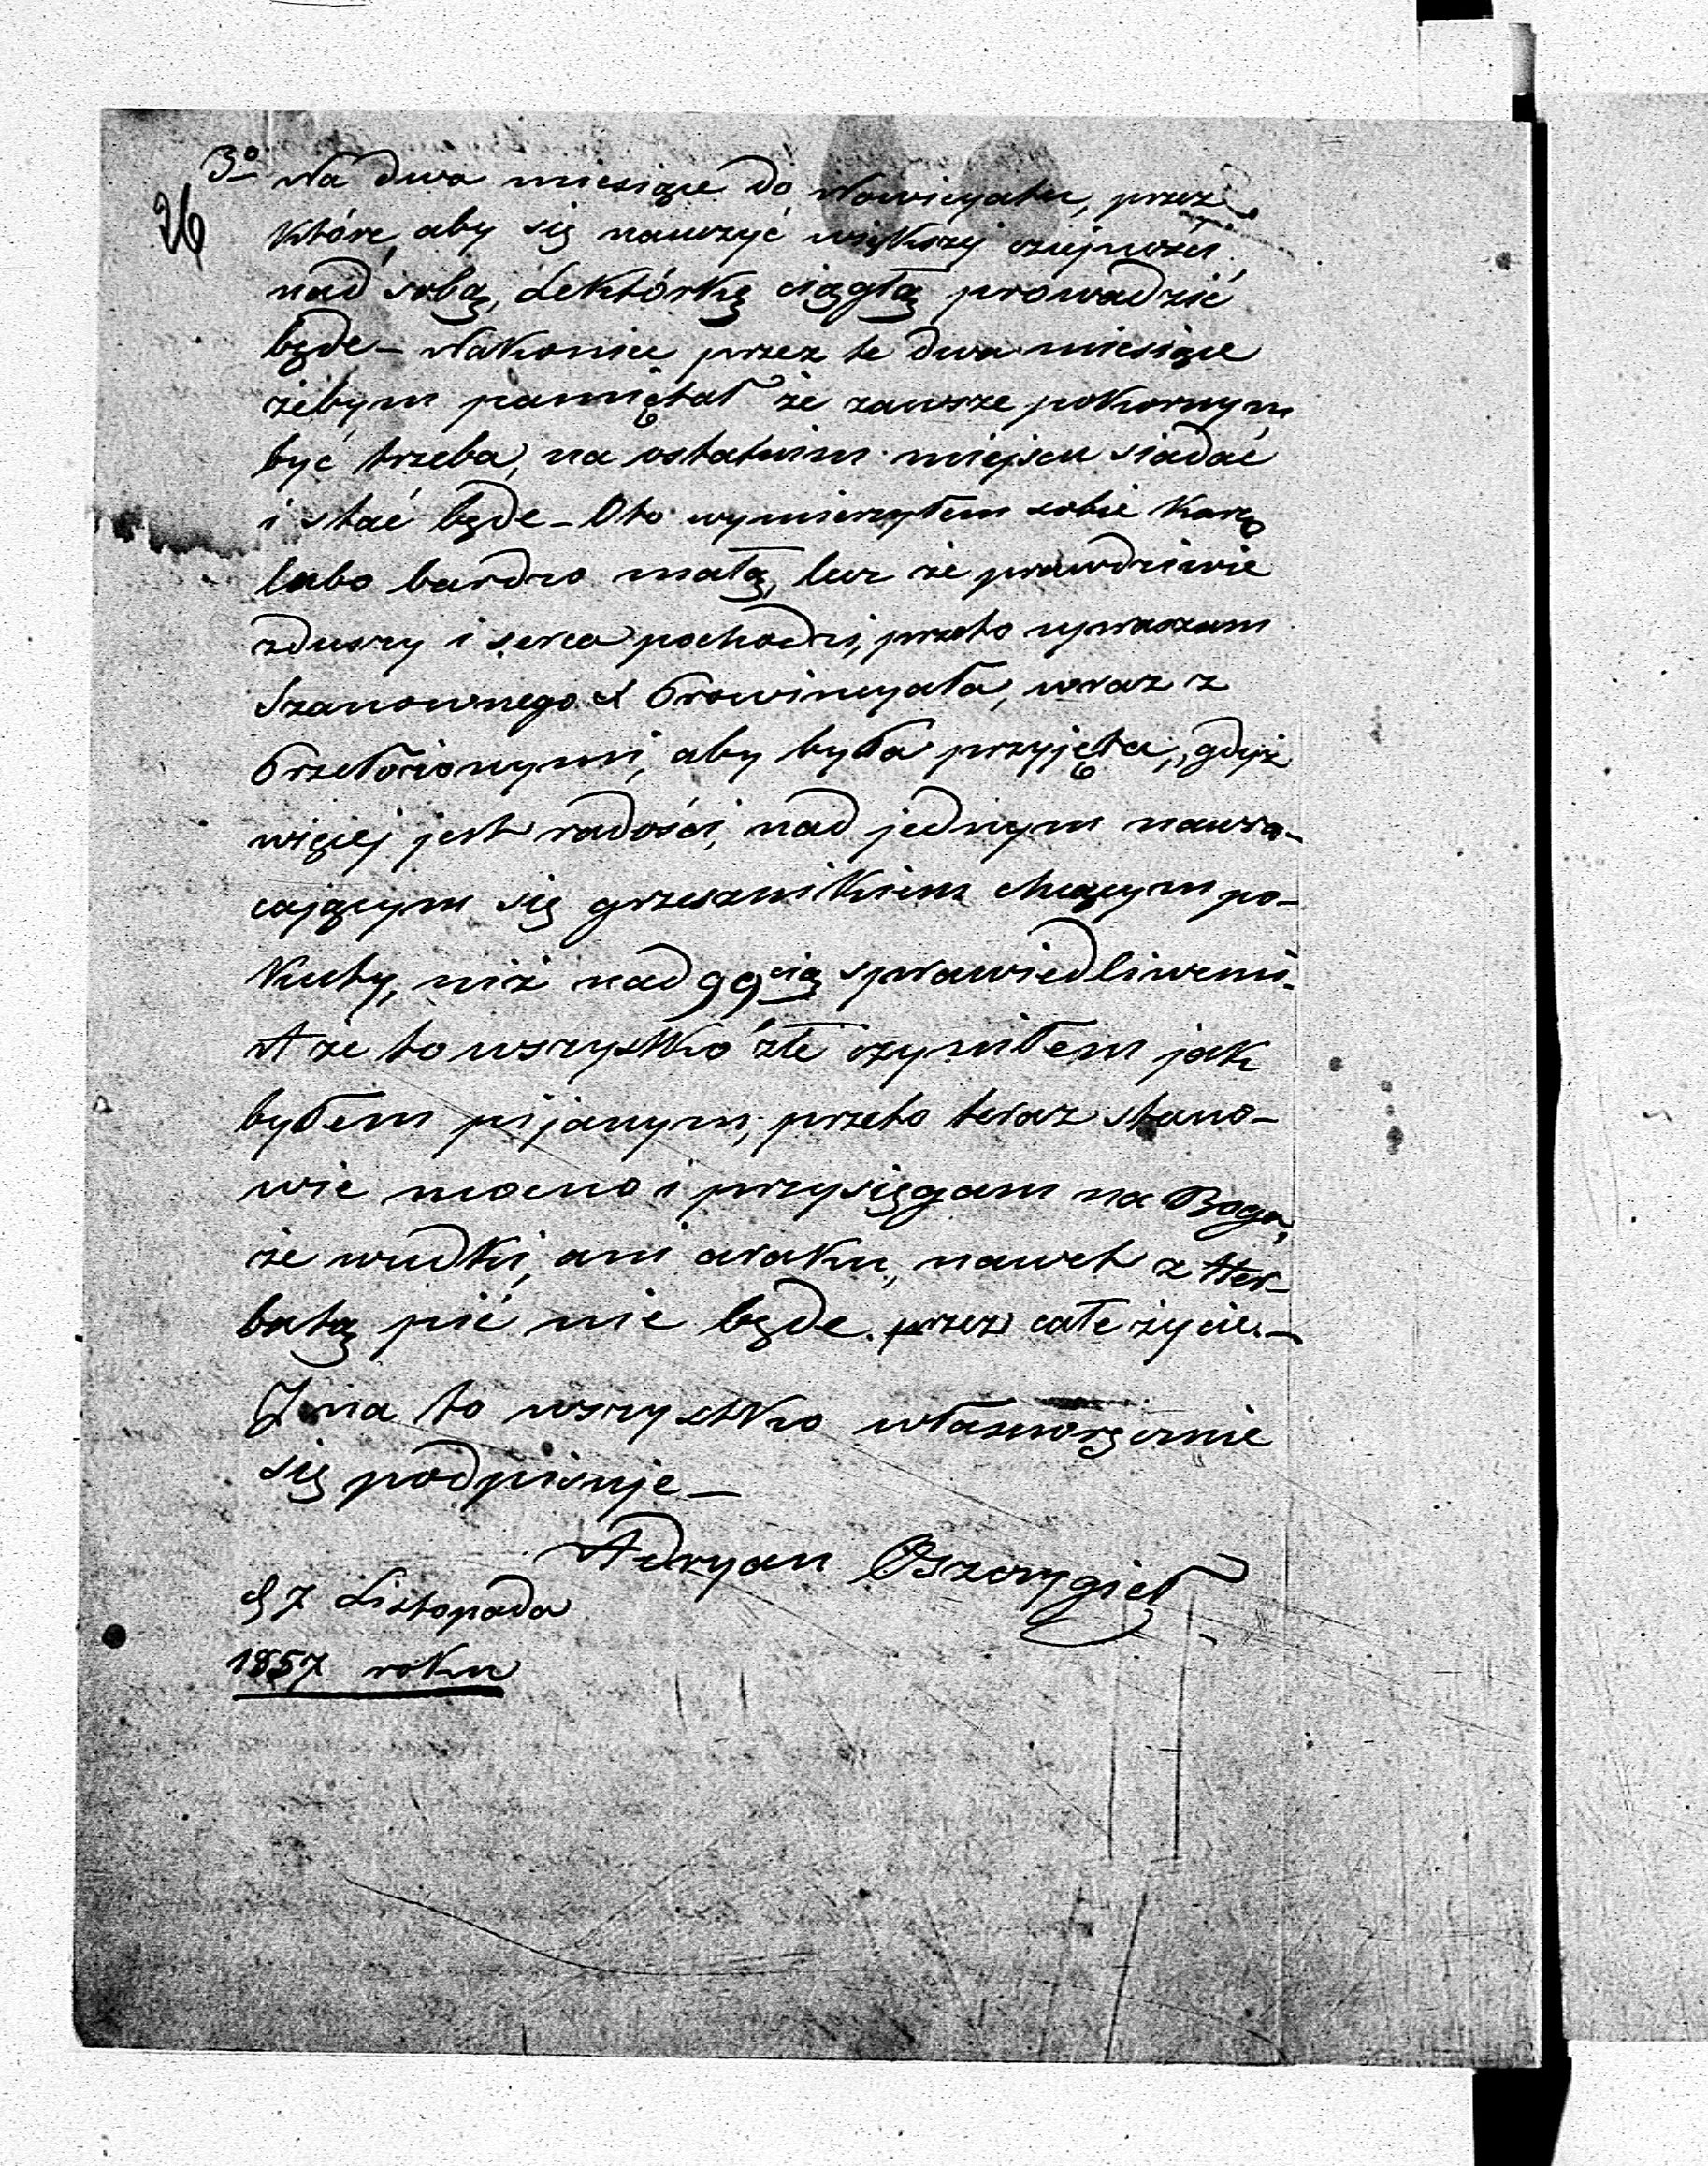 3o Na dwa miesiące do Nowicyatu, przez
26
które, aby się nauczyć większy czujności
nad sobą, Lektórkę ciągłą prowadzić
będe – Nakoniec przez te dwa miesiące
żebym pamiętał że zawsze pokornym
być trzeba, na ostatnim miejscu siadać
i stać będe – Oto wymierzyłem sobie karę
lubo bardzo małą, lecz że prawdziwie
zduszy i serca pochodzi, przeto upraszam
Szanownego X Prowincyała, wraz z
Przełożonymi, aby była przyjęta, gdyż
więcej jest radości, nad jednym nawra-
cającym się grzesznikiem chcącym po-
kuty, niż nad 99cią sprawiedliwemi.
A że to wszystko źłe czyniłem jak
byłem pijanym, przeto teraz stano-
wie mocno i przysięgam na Boga,
że wudki, ani araku, nawet z Her-
batą pić nie będe przez całe życie. –
I na to wszystko własnoręcznie
się podpisuje –
Adryan Oszczygieł
d 7 Listopada
1857 roku